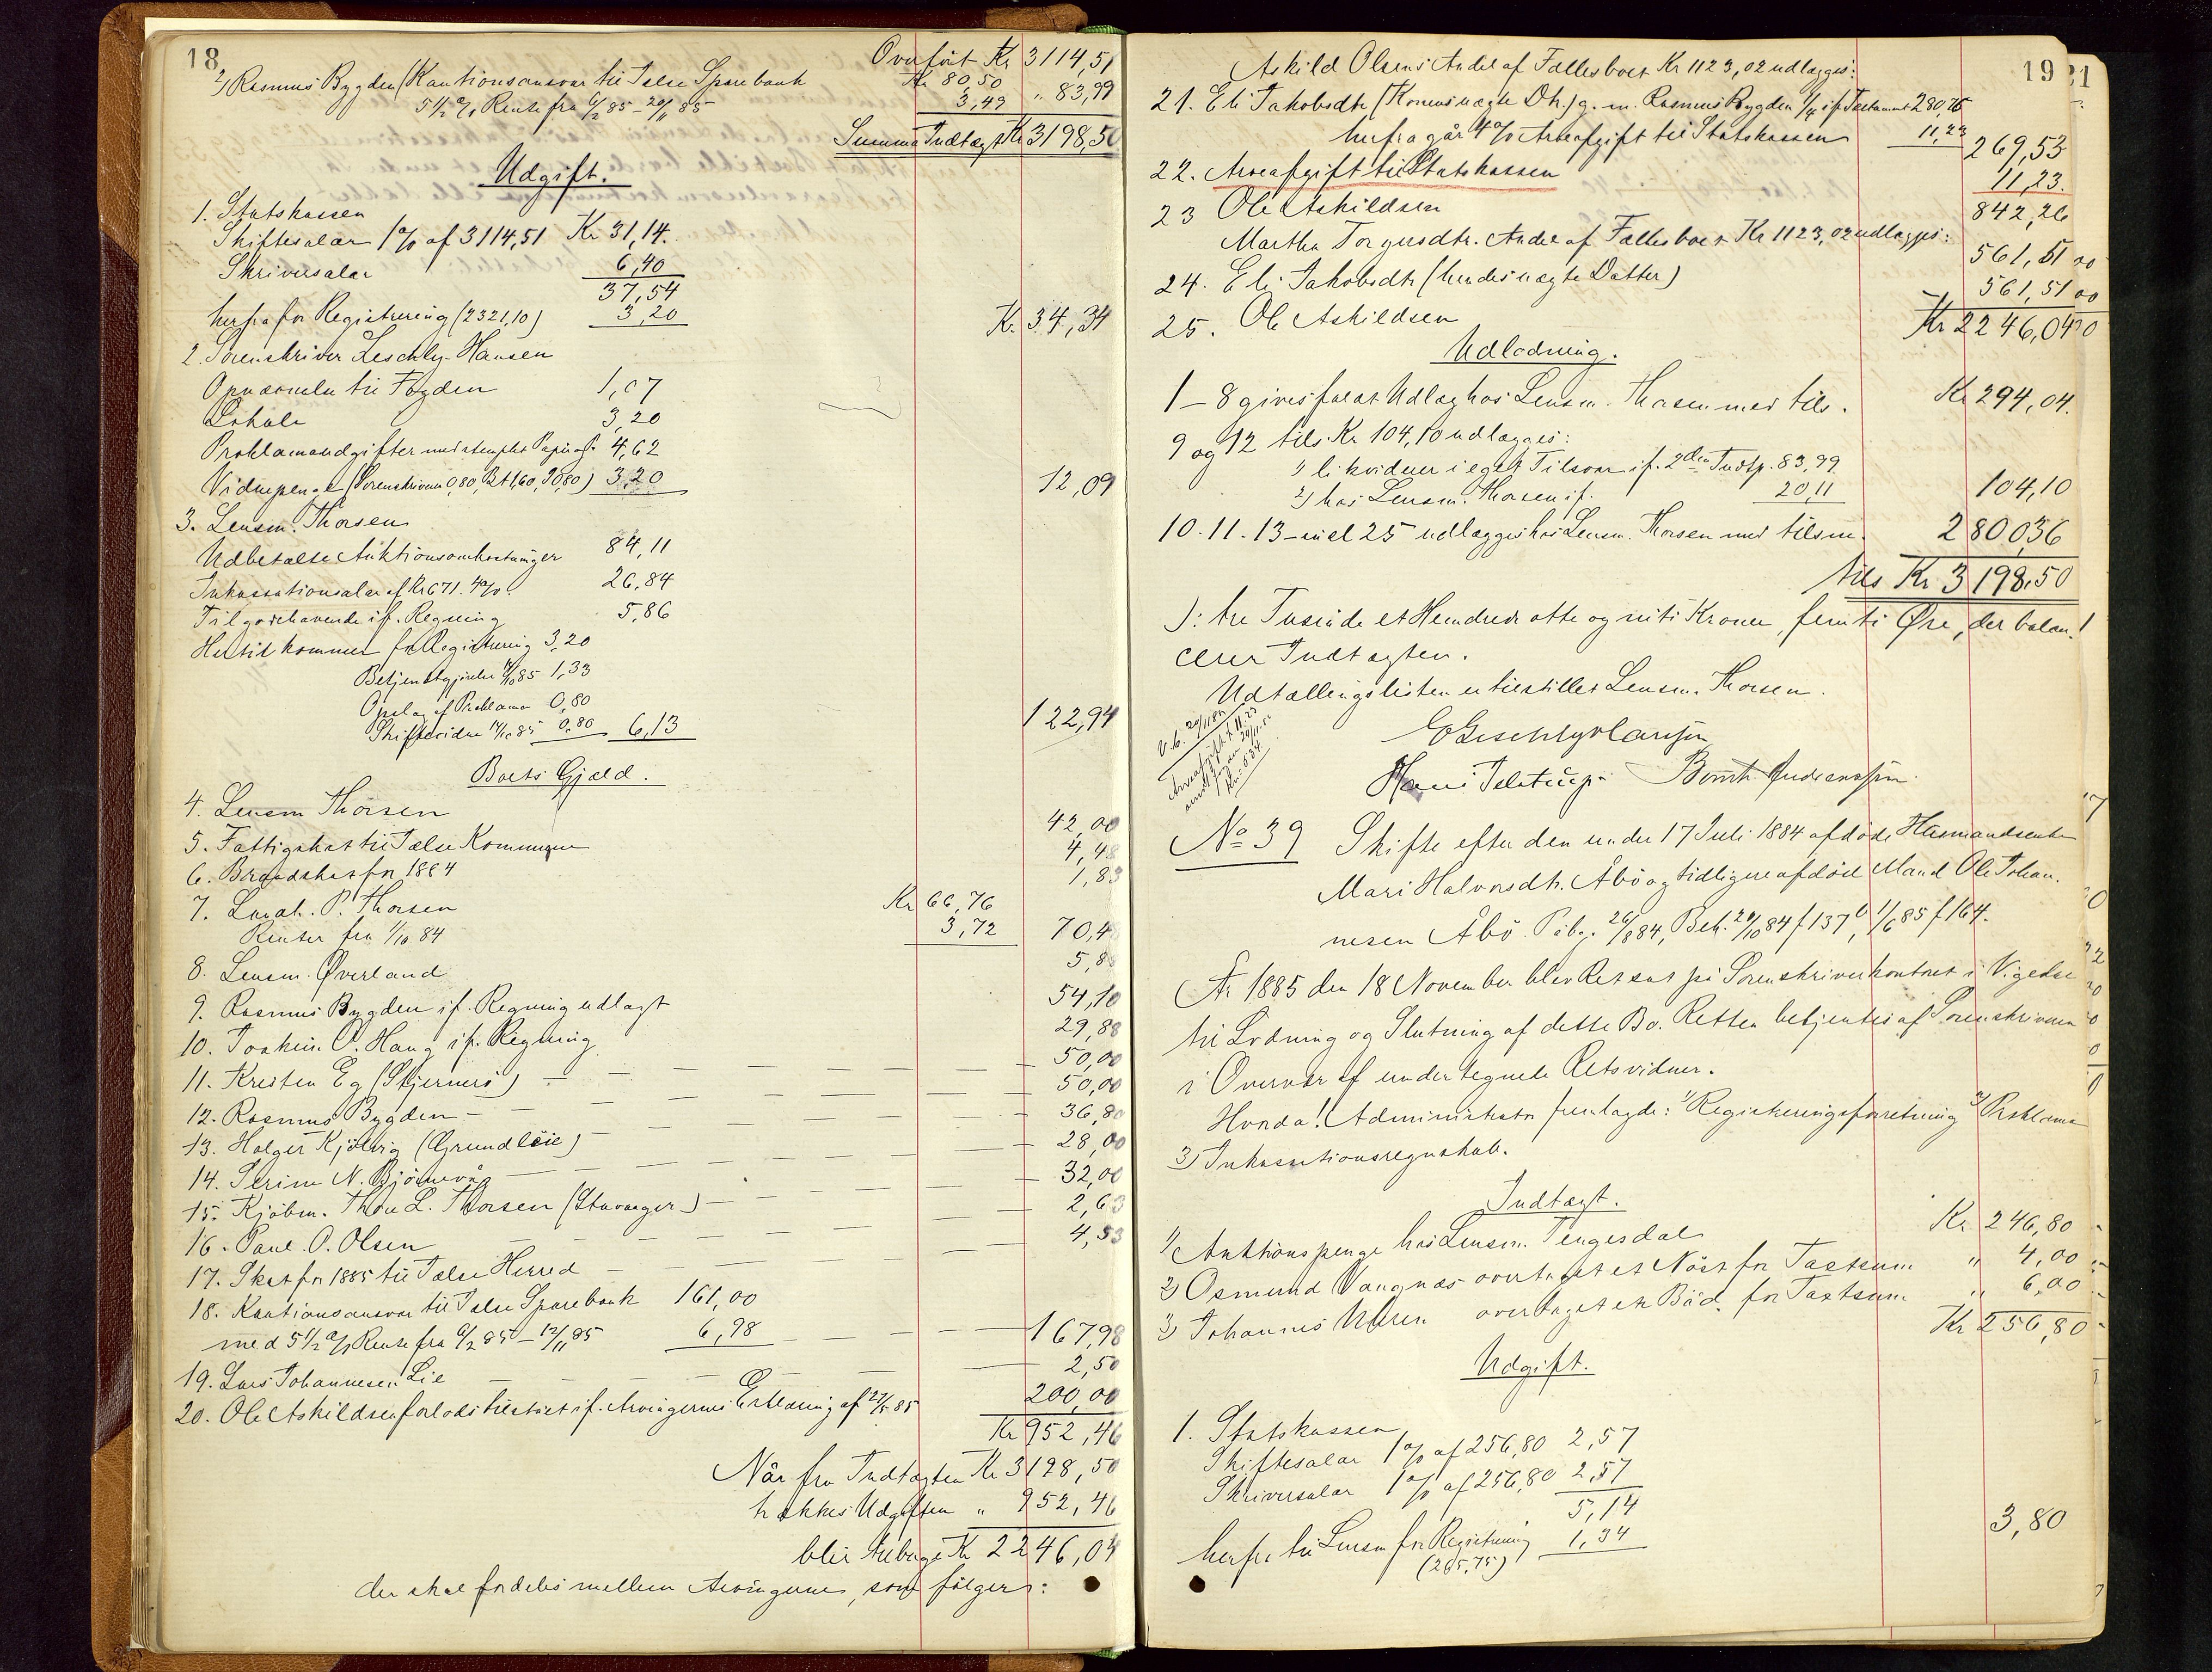 18
Overført Kr 3114,51
2) Rasmus Bygden (Kautionsansvar til Jelse Sparebank Kr 80,50
5 1/2 % Rente fra 6/2 85 - 20/11 85 3,49 " 83,99
Summa Indtægt Kr 3198,50
Udgift.
1. Statskassen
Skiftesalær 1 % af 3114,51 Kr 31,14.
Skriversalær 6,40
37,54
herfra for Registrering (2321,10) 3,20 Kr 34,34
2. Sorenskriver Zeschly-Hansen
Opnævnelse til Fogden 1,07
Lokale 3,20
Proklamaudgifter med stemplet Papir af 4,62
Vidnepenge (Sorenskriveren 0,80, Bet 1,60, 0,80) 3,20 12,09
3. Lensm. Thorsen
Udbetalte Auktionsomkostninger 84,11
Inkassationsalær af Kr 671. 4%. 26,84
Tilgodehavende if. Regning 5,86
Hertil kommer for Registrering 3,20
Betjent 85 1,33
Opslag af Proklama 0,80
Skiftevidne 85 0,80 6,13 122,94
Boets Gjæld.
4. Lensm Thorsen 42,00
5. Fattigskat til Jelse Kommune 4,48
6. Brandskat for 1884 1,83
7. Landh. P. Thorsen Kr 66,76
Renter fra 1/10 84 3,72 70,4
8. Lensm. Øverland 5,8
9. Rasmus Bygden if. Regning udlagt 54,10
10. Joakim O. Haug if. Regning 29,88
11. Kristen Eg (Stjernerø) — 50,00
12. Rasmus Bygden — 50,00
13. Holger Kjølvig (Grundleie) 36,80
14. Serine N. Bjørnevåg — 28,00
15. Kjøbm. Thore L. Thorsen (Stavanger) — 32,00
16. Paul O. Olsen — 2,63
17. Skat for 1885 til Jælse Herred — 4,53
18. Kautionsansvar til Jelse Sparebank 161,00
med 5 1/2 % Rente fra 6/2 85 - 12/11 85 6,98 — 167,98
19. Lars Johannesen Lie — 2,50
20. Ole Askildsen forlods tilstået if. Arvingernes Erklæring af 27/5 85 200,00
Kr 952,46
Når fra Indtægten Kr 3198,50
trækkes Udgiften " 952,46
blir tilbage Kr 2246,04
der skal fordeles mellem Arvingerne, som følger:
19
21
Askild Olsens Andel af Fællesboet Kr 1123,02 udlægges:
21. Eli Jakobsdtr (Konens ægte Dtr.) g. m. Rasmus Bygden 1/4 if. Testament 280,76
herfra går 4% Arveafgift til Statskassen 11,23 269,53
22. Arveafgift til Statskassen 11,23.
23 Ole Askildsen 842,26
Martha Torgersdtr. Andel af Fællesboet Kr 1123,02 udlægges:
24. Eli Jakobsdtr (hendes ægte Datter) 561,51
25. Ole Askildsen 561,51
Kr 2246,04
Udlodning.
1 - 8 gives forlods Udlæg hos Lensm. Thorsen med tils. Kr 294,04.
9 og 12 tils. Kr 104,10 udlægges:
1) likviderer i eget Tilsvar if. 2den Indtp. 83,99
2) hos Lensm. Thorsen if. 20,11 104,10
10. 11. 13 - incl 25 udlægges hos Lensm. Thorsen med tilsm. 2800,36
tils Kr. 3198,50
ɔ: tre Tusinde et Hundrede otte og niti Kroner, femti Øre, der balan!
cerer Indtægten.
Udtællingslisten er tilstillet Lensm. Thorsen.
V. 6. 20/11 85
Arveafgift 11.23
Hans Jelstrup. Bernt Andreassen.
No 39 Skifte efter den under 17 Juli 1884 afdøde Husmandsenke
Mari Halvorsdtr. Åbø og tidligere afdøde Mand Ole Johan.
nesen Åbø. Påbeg. 26/8 84, Beh. 29/10 84 f 137 b, 1/6 85 f 164.
År 1885 den 18 November blev Ret sat på Sorenskriverkontoret i Vigedal
til Lodning og Slutning af dette Bo. Retten betjentes af Sorenskriveren
i Overvær af undertegnede Retsvidner.
Hvorda! Administrator fremlagde: 1) Registreringsforretning 2) Proklama
3) Inkassationsregnskab.
Indtægt.
1) Auktionspenge hos Lensm. Tengesdal Kr 246,80
2) Osmund Vangnæs overtaget et Nøst for Taxtsum " 4,00
3) Johannes overtaget en Båd for Taxtsum " 6,00
Kr 256,80
Udgift.
1. Statskassen
Skiftesalær 1 % af 256,80 2,57
Skriversalær 1 % af 256,80 2,57
5,14
herfra til Lensm for Registrering 1,34 3,80
(265,75)